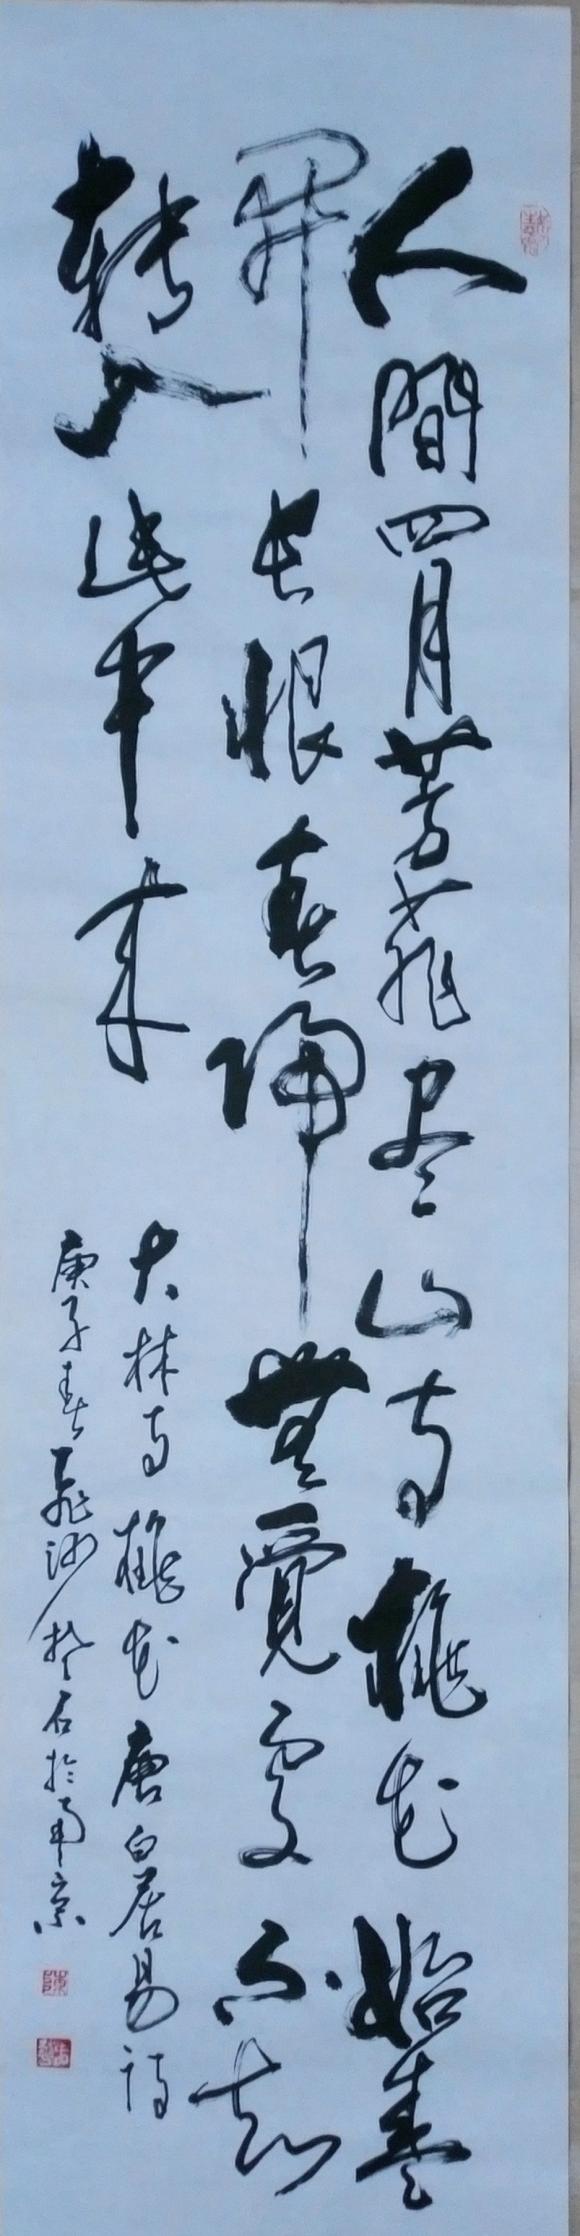 人間四月芳菲尽山寺桃花始盛
開长恨春歸無覓處不知
轉入此中来
大林寺桃花唐白居易诗
庚子春石於南京